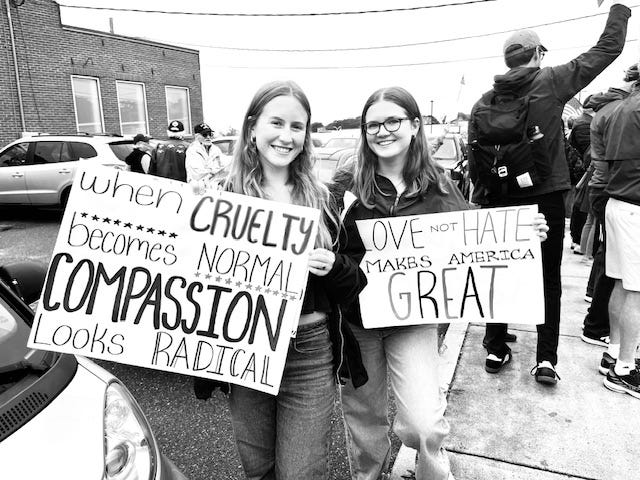 when CRUELTY
becomes NORMAL,
COMPASSION
Looks RADICAL
LOVE NOT HATE
MAKES AMERICA
GREAT